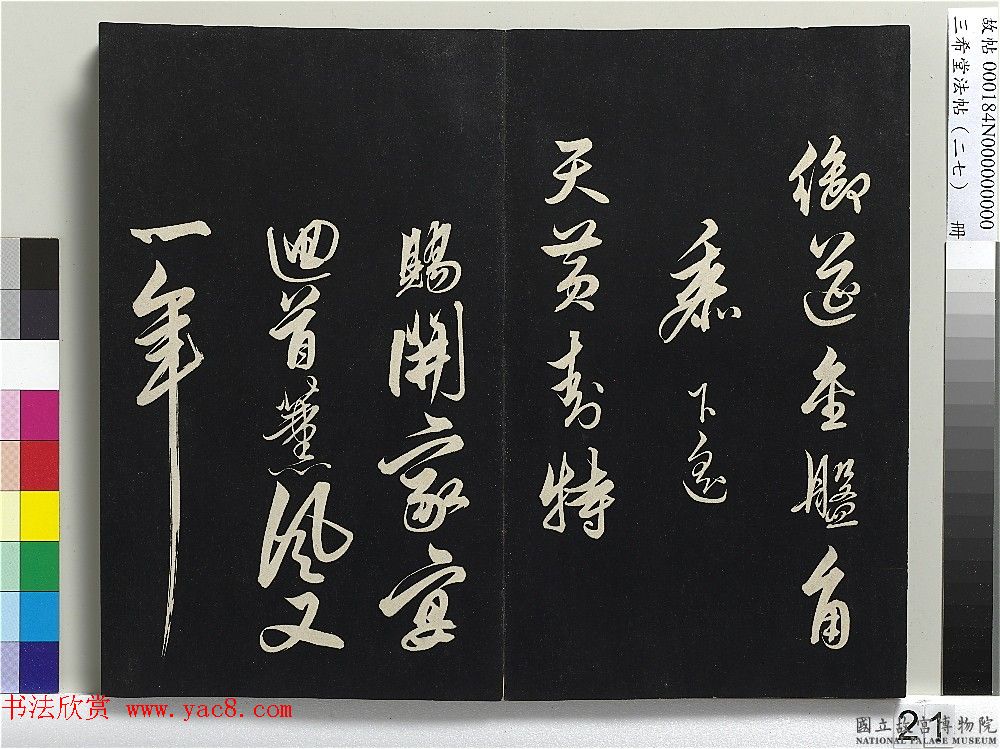 御筵金盤角
黍下遙
天黃封特
賜開家宴
迴首薰風又
一年
故帖 000184N000000000
三希堂法帖(二七) 冊
书法欣赏 www.yac8.com
21
國立故宮博物院
NATIONAL PALACE MUSEUM